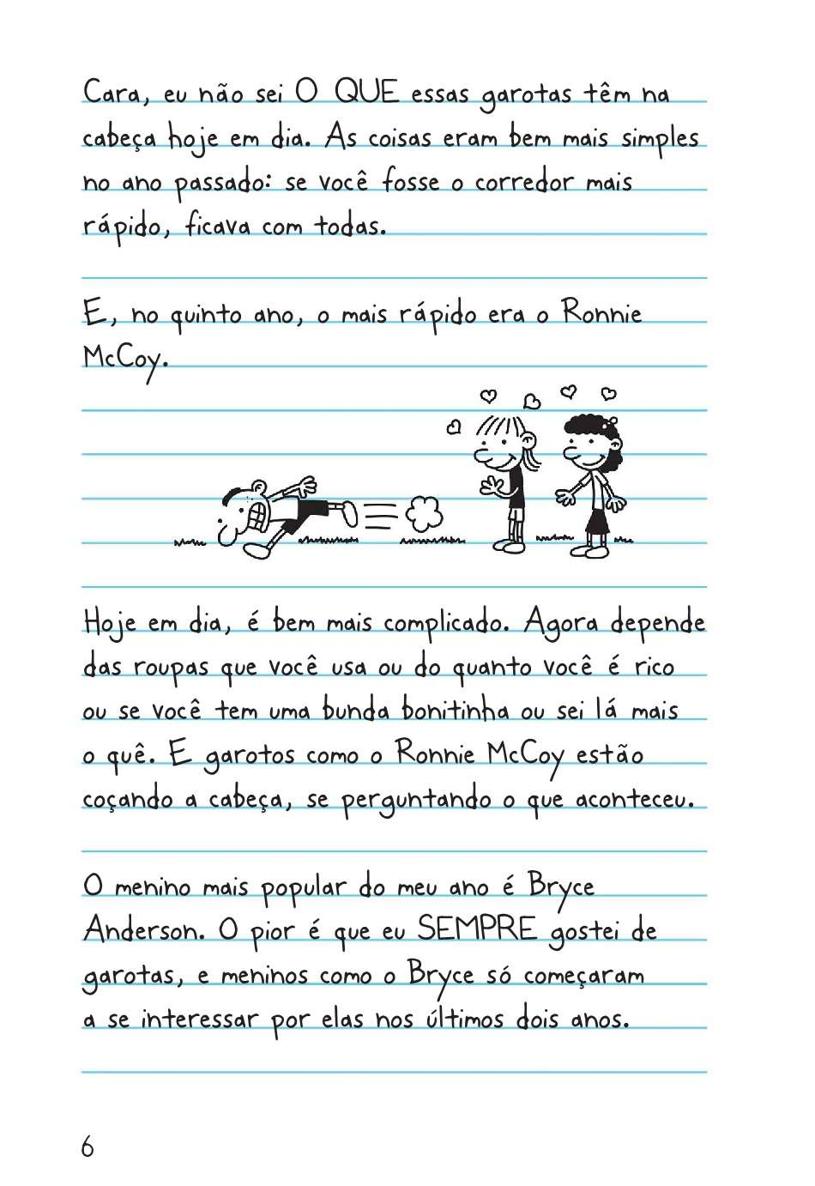 Cara, eu não sei O QUE essas garotas têm na
cabeça hoje em dia. As coisas eram bem mais simples
no ano passado: se você fosse o corredor mais
rápido, ficava com todas.
E, no quinto ano, o mais rápido era o Ronnie
McCoy.
Hoje em dia, é bem mais complicado. Agora depende
das roupas que você usa ou do quanto você é rico
ou se você tem uma bunda bonitinha ou sei lá mais
o quê. E garotos como o Ronnie McCoy estão
coçando a cabeça, se perguntando o que aconteceu.
O menino mais popular do meu ano é Bryce
Anderson. O pior é que eu SEMPRE gostei de
garotas, e meninos como o Bryce só começaram
a se interessar por elas nos últimos dois anos.
6